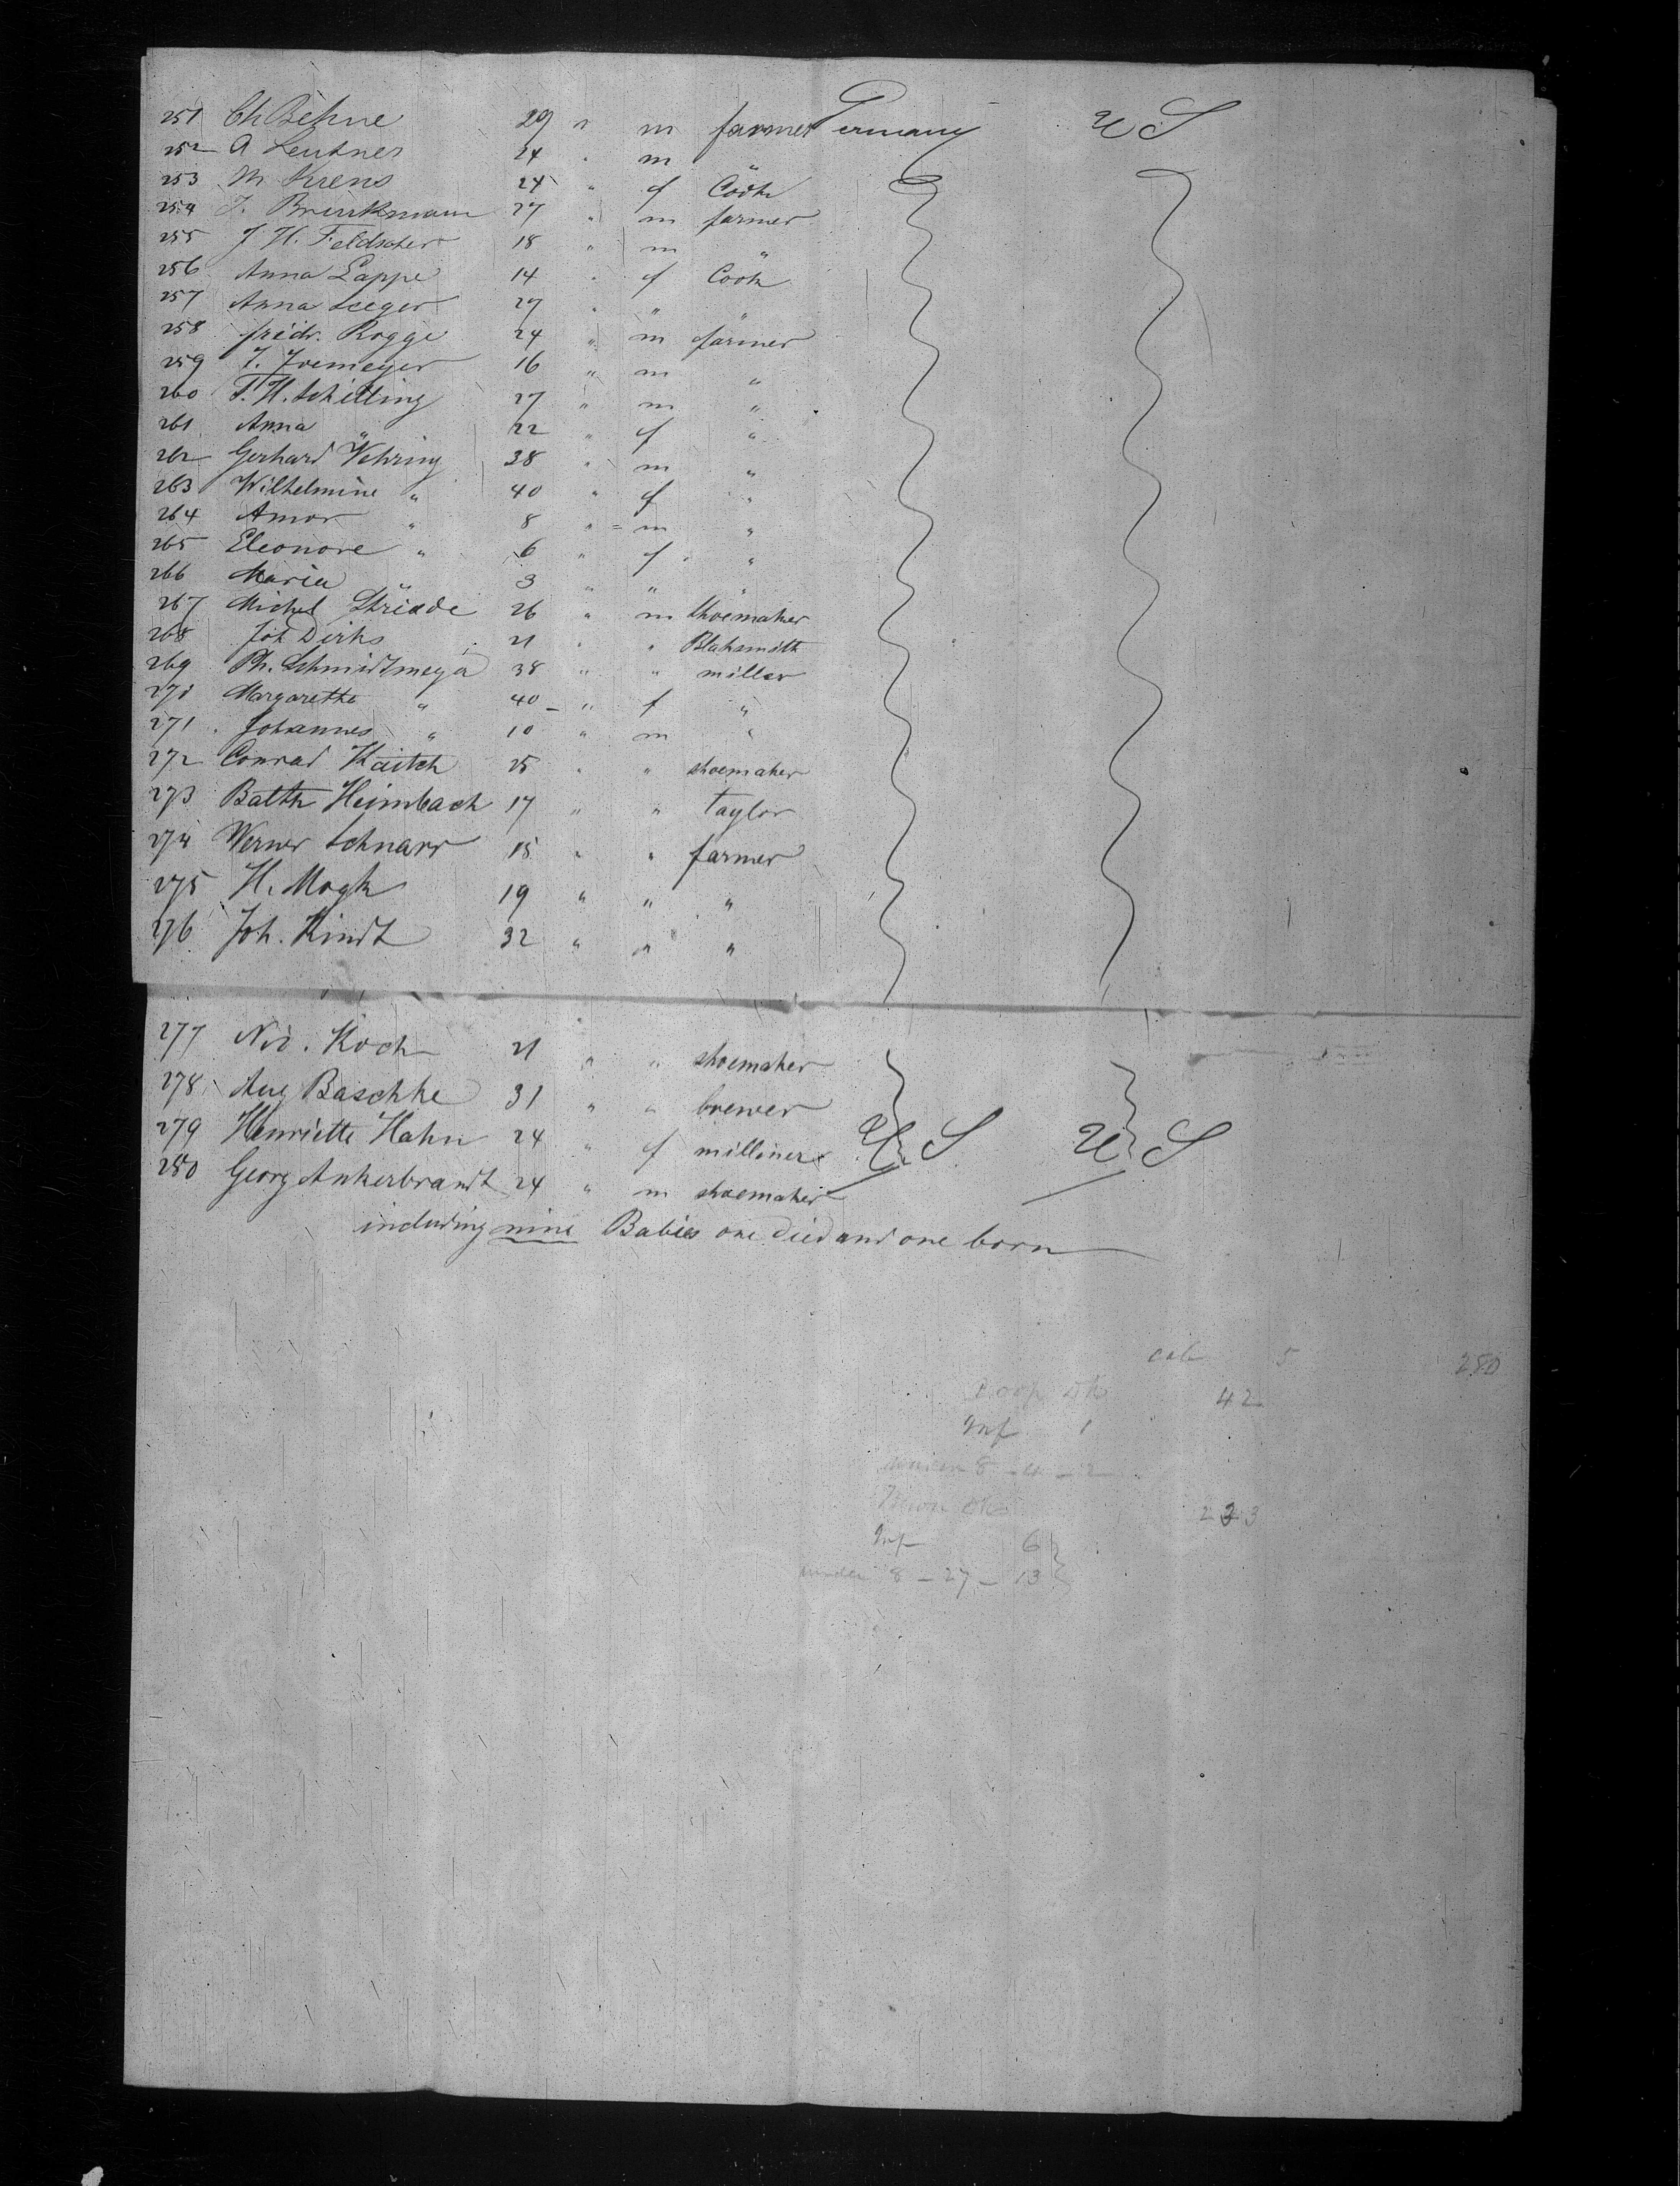 251 Ch Behne 29 " m farmer Germany U S
252 A Leutner 24 " m "
253 M Krens 24 " f Cook
254 J. Brinkmann 27 " m farmer
255 J H. Feldscher 18 " m "
256 Anna Lappe 14 " f Cook
257 Anna Seeger 27 " " "
258 fridr. Rogge 24 " m farmer
259 16 " m "
260 F. H. Schilling 27 " m "
261 Anna " 22 " f "
262 Gerhard Wehring 38 " m "
263 Wilhelmine " 40 " f "
264 Amor " 8 " = m "
265 Eleonore " 6 " f "
266 Maria " 3 " " "
267 Michel 26 " m Shoemaker
268 Joh Dirks 21 " " Blaksmith
269 Ph. Schmidtmeya 38 " " miller
270 Margarethe " 40 " f "
271 Johannes " 10 " m "
272 Conrad Kaitch 25 " " shoemaker
273 Balth Heimbach 17 " " Taylor
274 Werner Schnarr 18 " " farmer
275 H. Mogk 19 " " "
276 Joh. Kindt 32 " " "
277 Koch 21 " " shoemaker
278 Aug Baschke 31 " " brewer
279 Henriette Hahn 24 " f milliner U S U S
280 Georg Ankerbrandt 24 " m shoemaker
including nine Babies one died and one born
cab 5 280
42
Inf 1
8 - 4 - 2
Inf 6
under 8 - 27 - 13